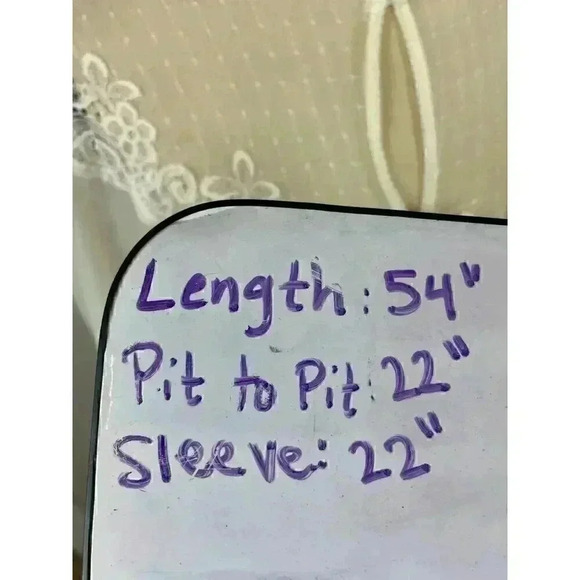 Length: 54"
Pit to Pit: 22"
Sleeve: 22"